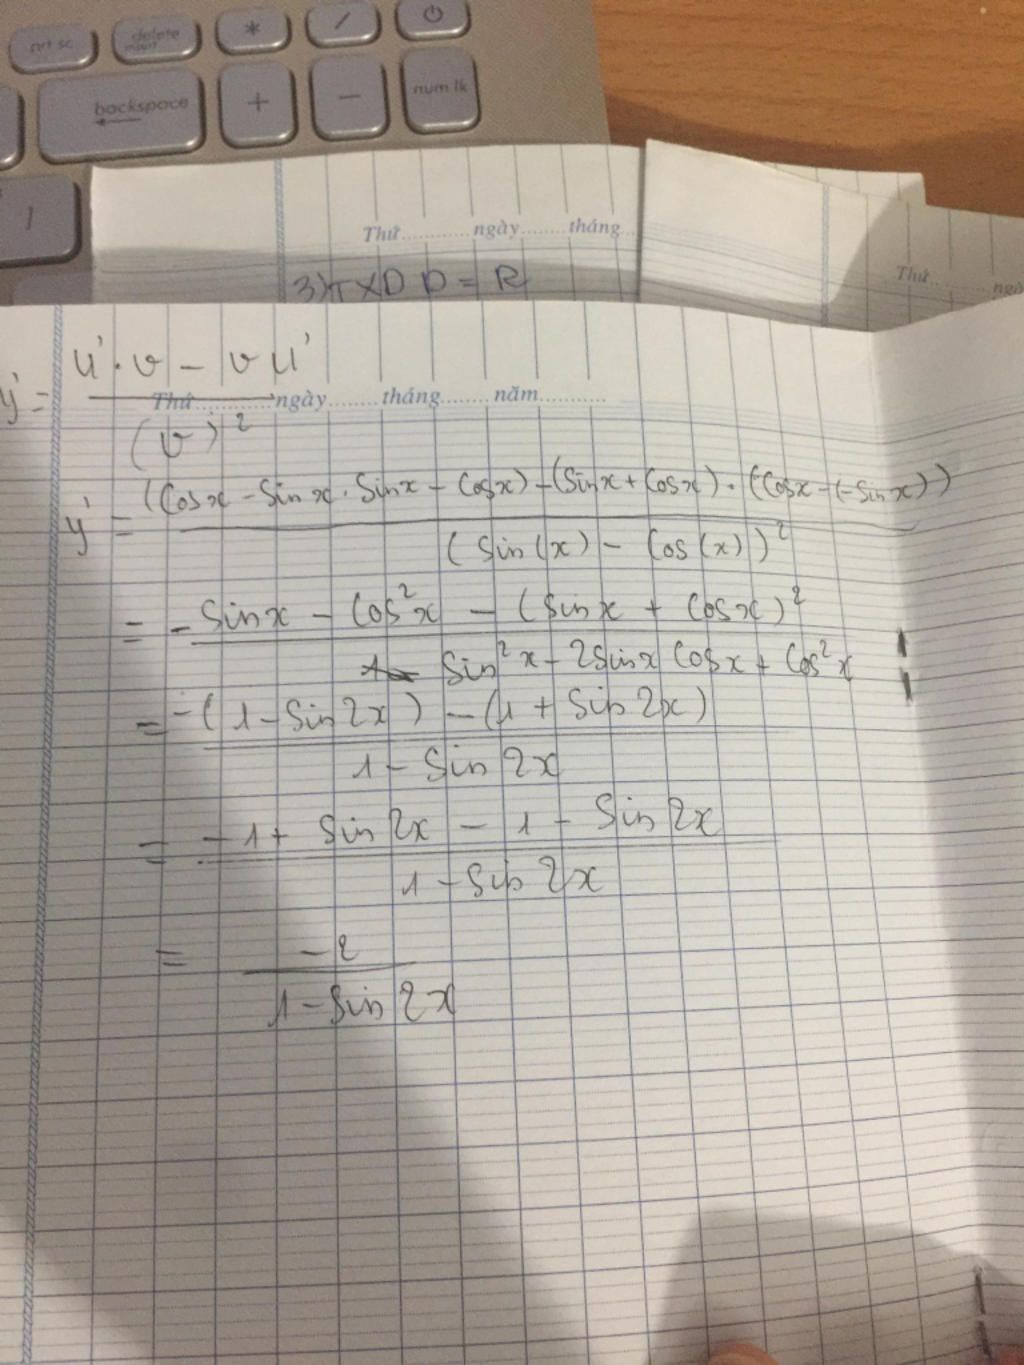 prt sc delete insert * /
backspace + - num lk
Thứ............ngày........tháng...
3) TXD D = R
Thứ............ngà
u'.v - v u'
y' =
Thứ............ngày........tháng........năm............
(v)²
(Cosx - Sinx . Sinx - Cosx) - (Sinx + Cosx) . (Cosx - (-Sinx))
y' =
(Sin(x) - Cos(x))²
= - Sinx - Cos²x - (Sinx + Cosx)²
Sin²x - 2Sinx Cosx + Cos²x
= -(1 - Sin2x) - (1 + Sin2x)
1 - Sin2x
= -1 + Sin2x - 1 - Sin2x
1 - Sin2x
= -2
1 - Sin2x